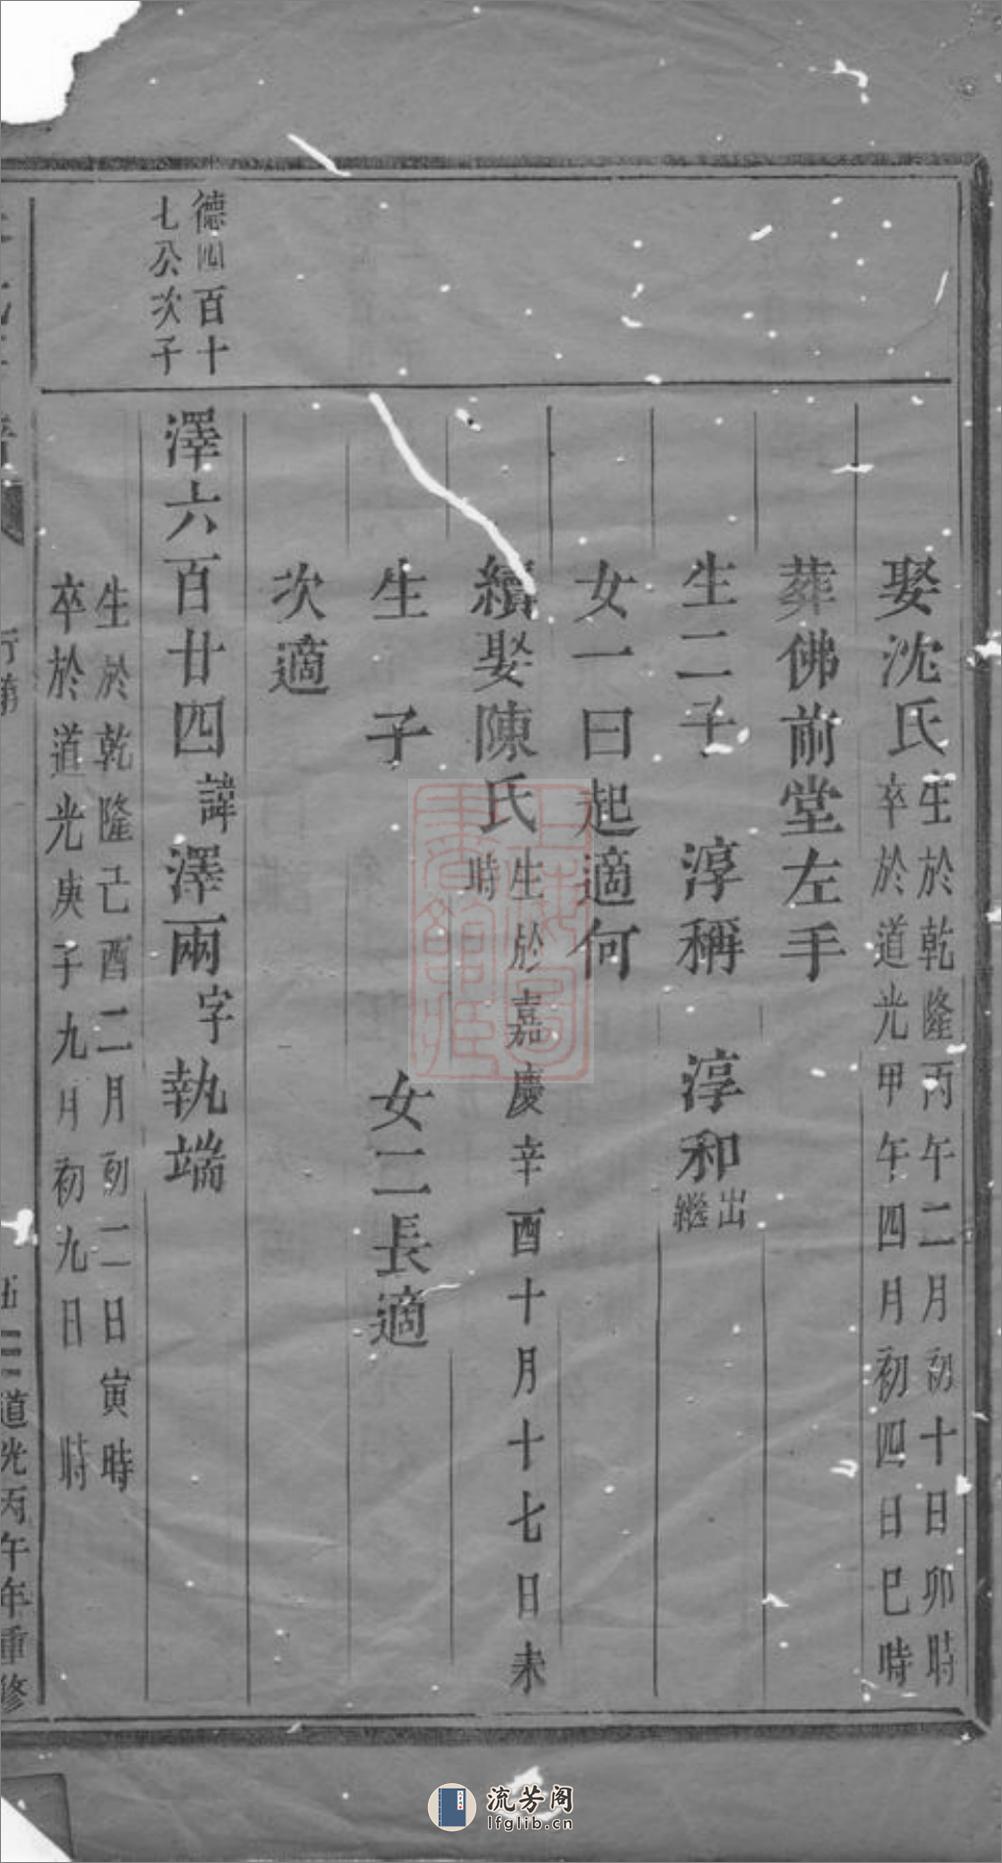 娶沈氏生於乾隆丙午二月初十日卯時
卒於道光甲午四月初四日巳時
葬佛前堂左手
生二子 淳稱 淳和出繼
女一曰起適何
續娶陳氏生於嘉慶辛酉十月十七日未
時
生 子 女二長適
次適
德四百十
七公次子
澤六百廿四諱澤兩字執端
生於乾隆己酉二月初二日寅時
卒於道光庚子九月初九日 時
行第
道光丙午年重修
流芳阁
lfglib.cn